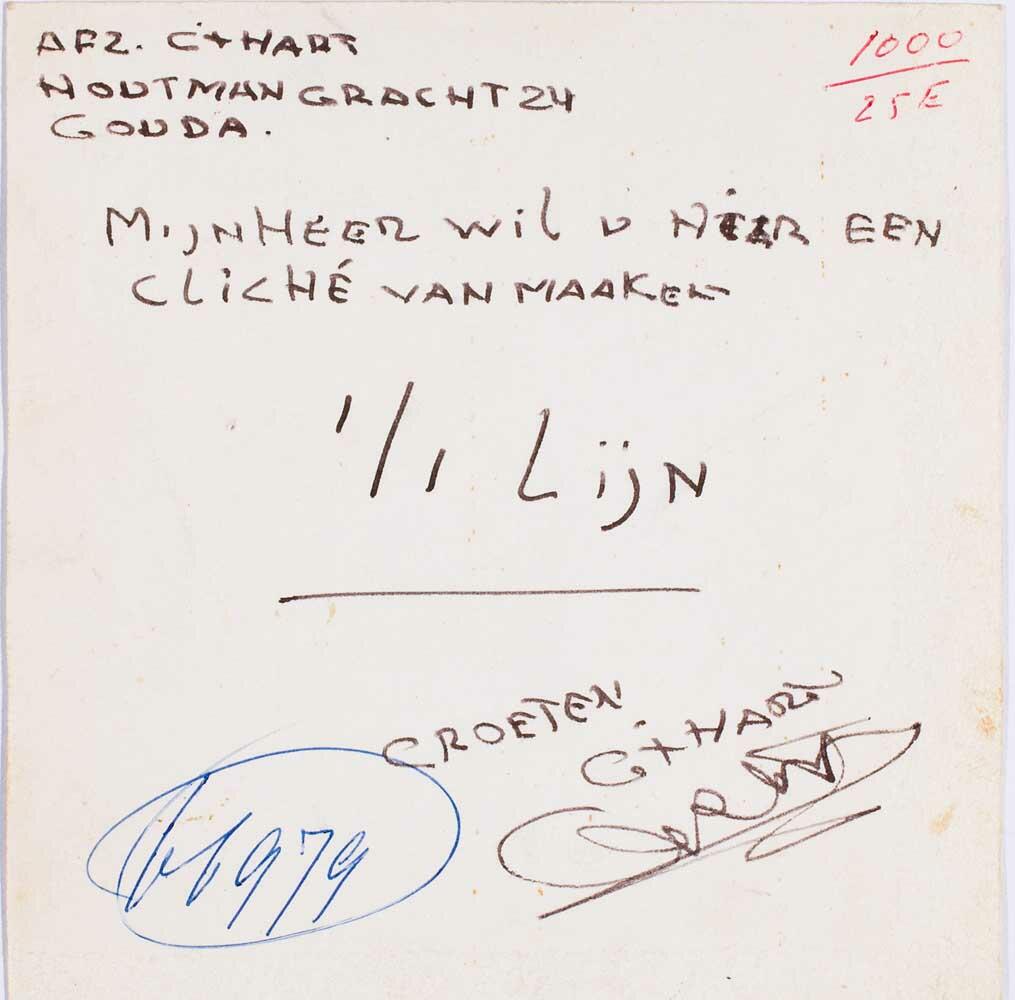 AFZ. G 't HART
HOUTMAN GRACHT 24
GOUDA.
1000
25 E
MijNHEER wil U HiER EEN
CLiCHÉ VAN MAAKEN
1/1 Lijn
GROETEN
G 't HART
66979